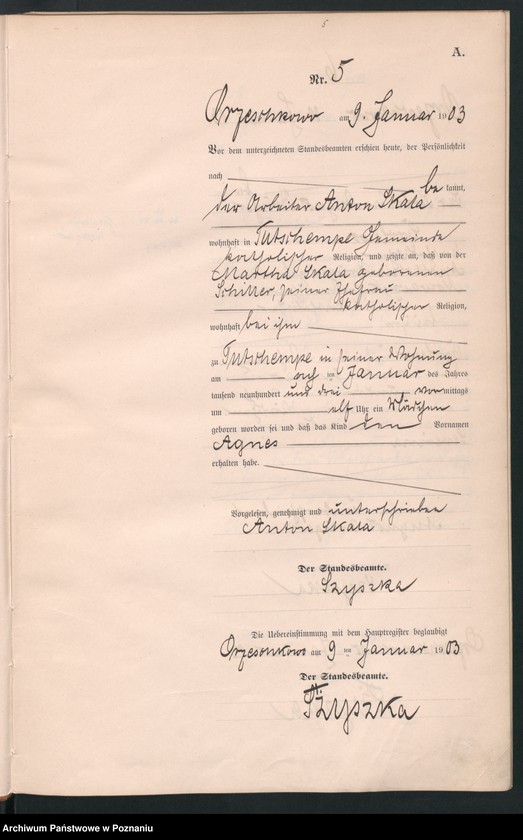 5
A.
Nr. 5
Orzeschkowo am 9. Januar 1903
Vor dem unterzeichneten Standesbeamten erschien heute, der Persönlichkeit
nach be kannt,
der Arbeiter Anton Skala
wohnhaft in Tutschempe Gemeinde
katholischer Religion, und zeigte an, daß von der
Martha Skala geborenen
Schiller, seiner Ehefrau
katholischer Religion,
wohnhaft bei ihm
zu Tutschempe in seiner Wohnung
am ten Januar des Jahres
tausend neunhundert und drei vormittags
um elf Uhr ein Mädchen
geboren worden sei und daß das Kind den Vornamen
Agnes
erhalten habe.
Vorgelesen, genehmigt und unterschrieben
Anton Skala
Der Standesbeamte.
Szyszka
Die Uebereinstimmung mit dem Hauptregister beglaubigt
Orzeschkowo am 9 ten Januar 1903
Der Standesbeamte.
Szyszka
Archiwum Państwowe w Poznaniu